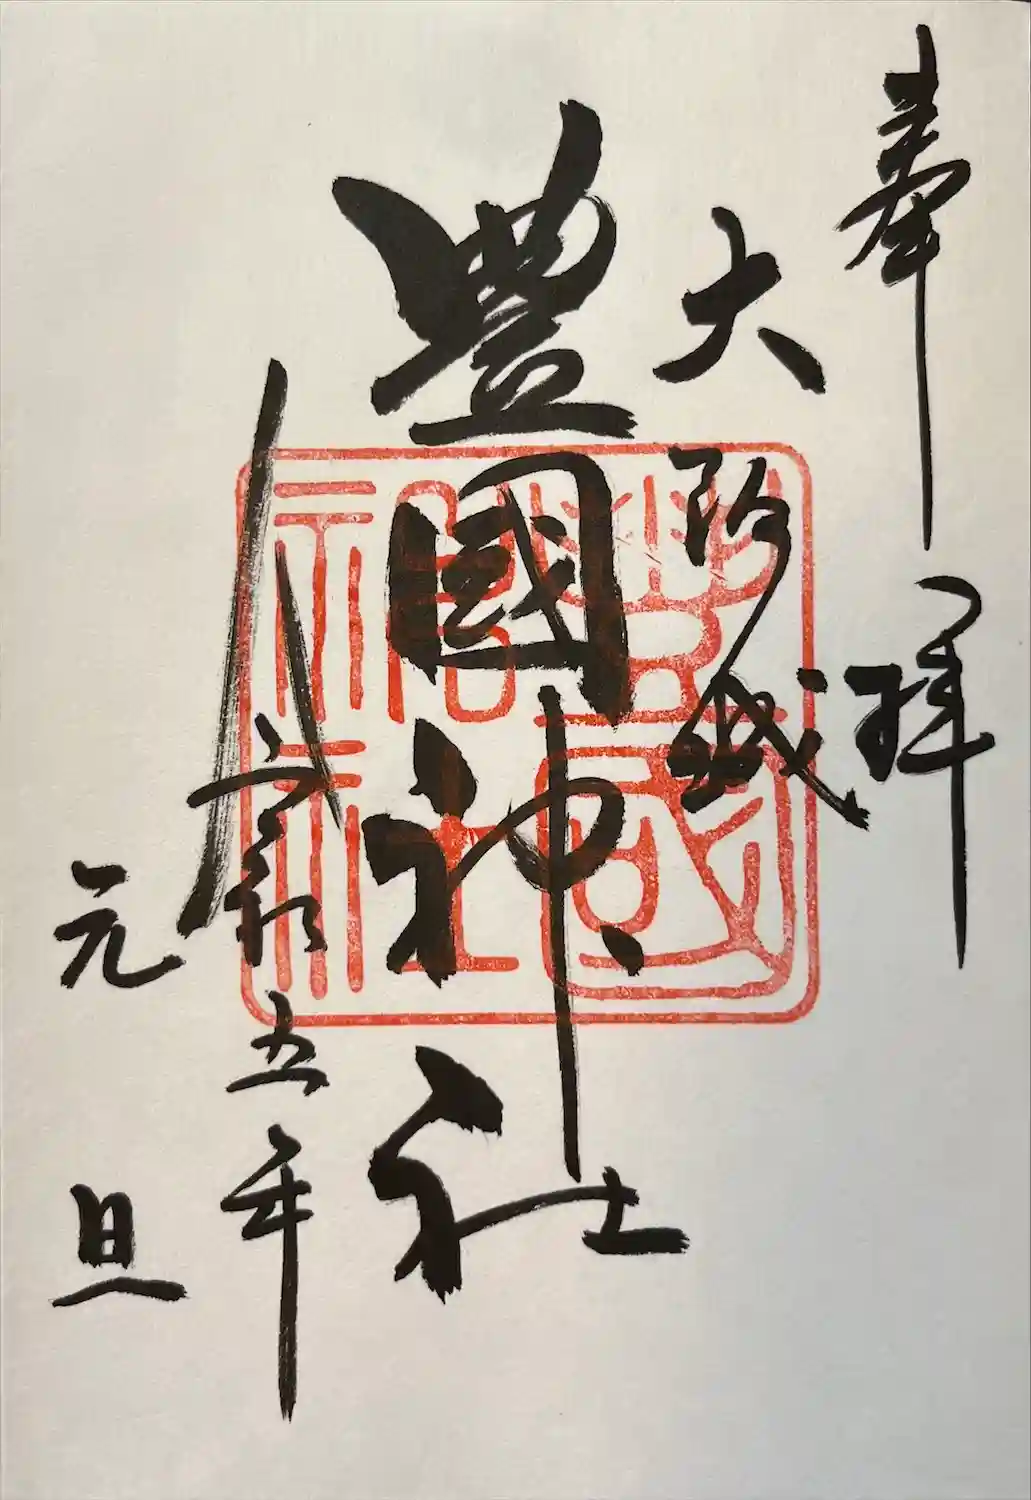 奉拝
大阪城
豊國神社
令和五年
元旦
豐國
神社